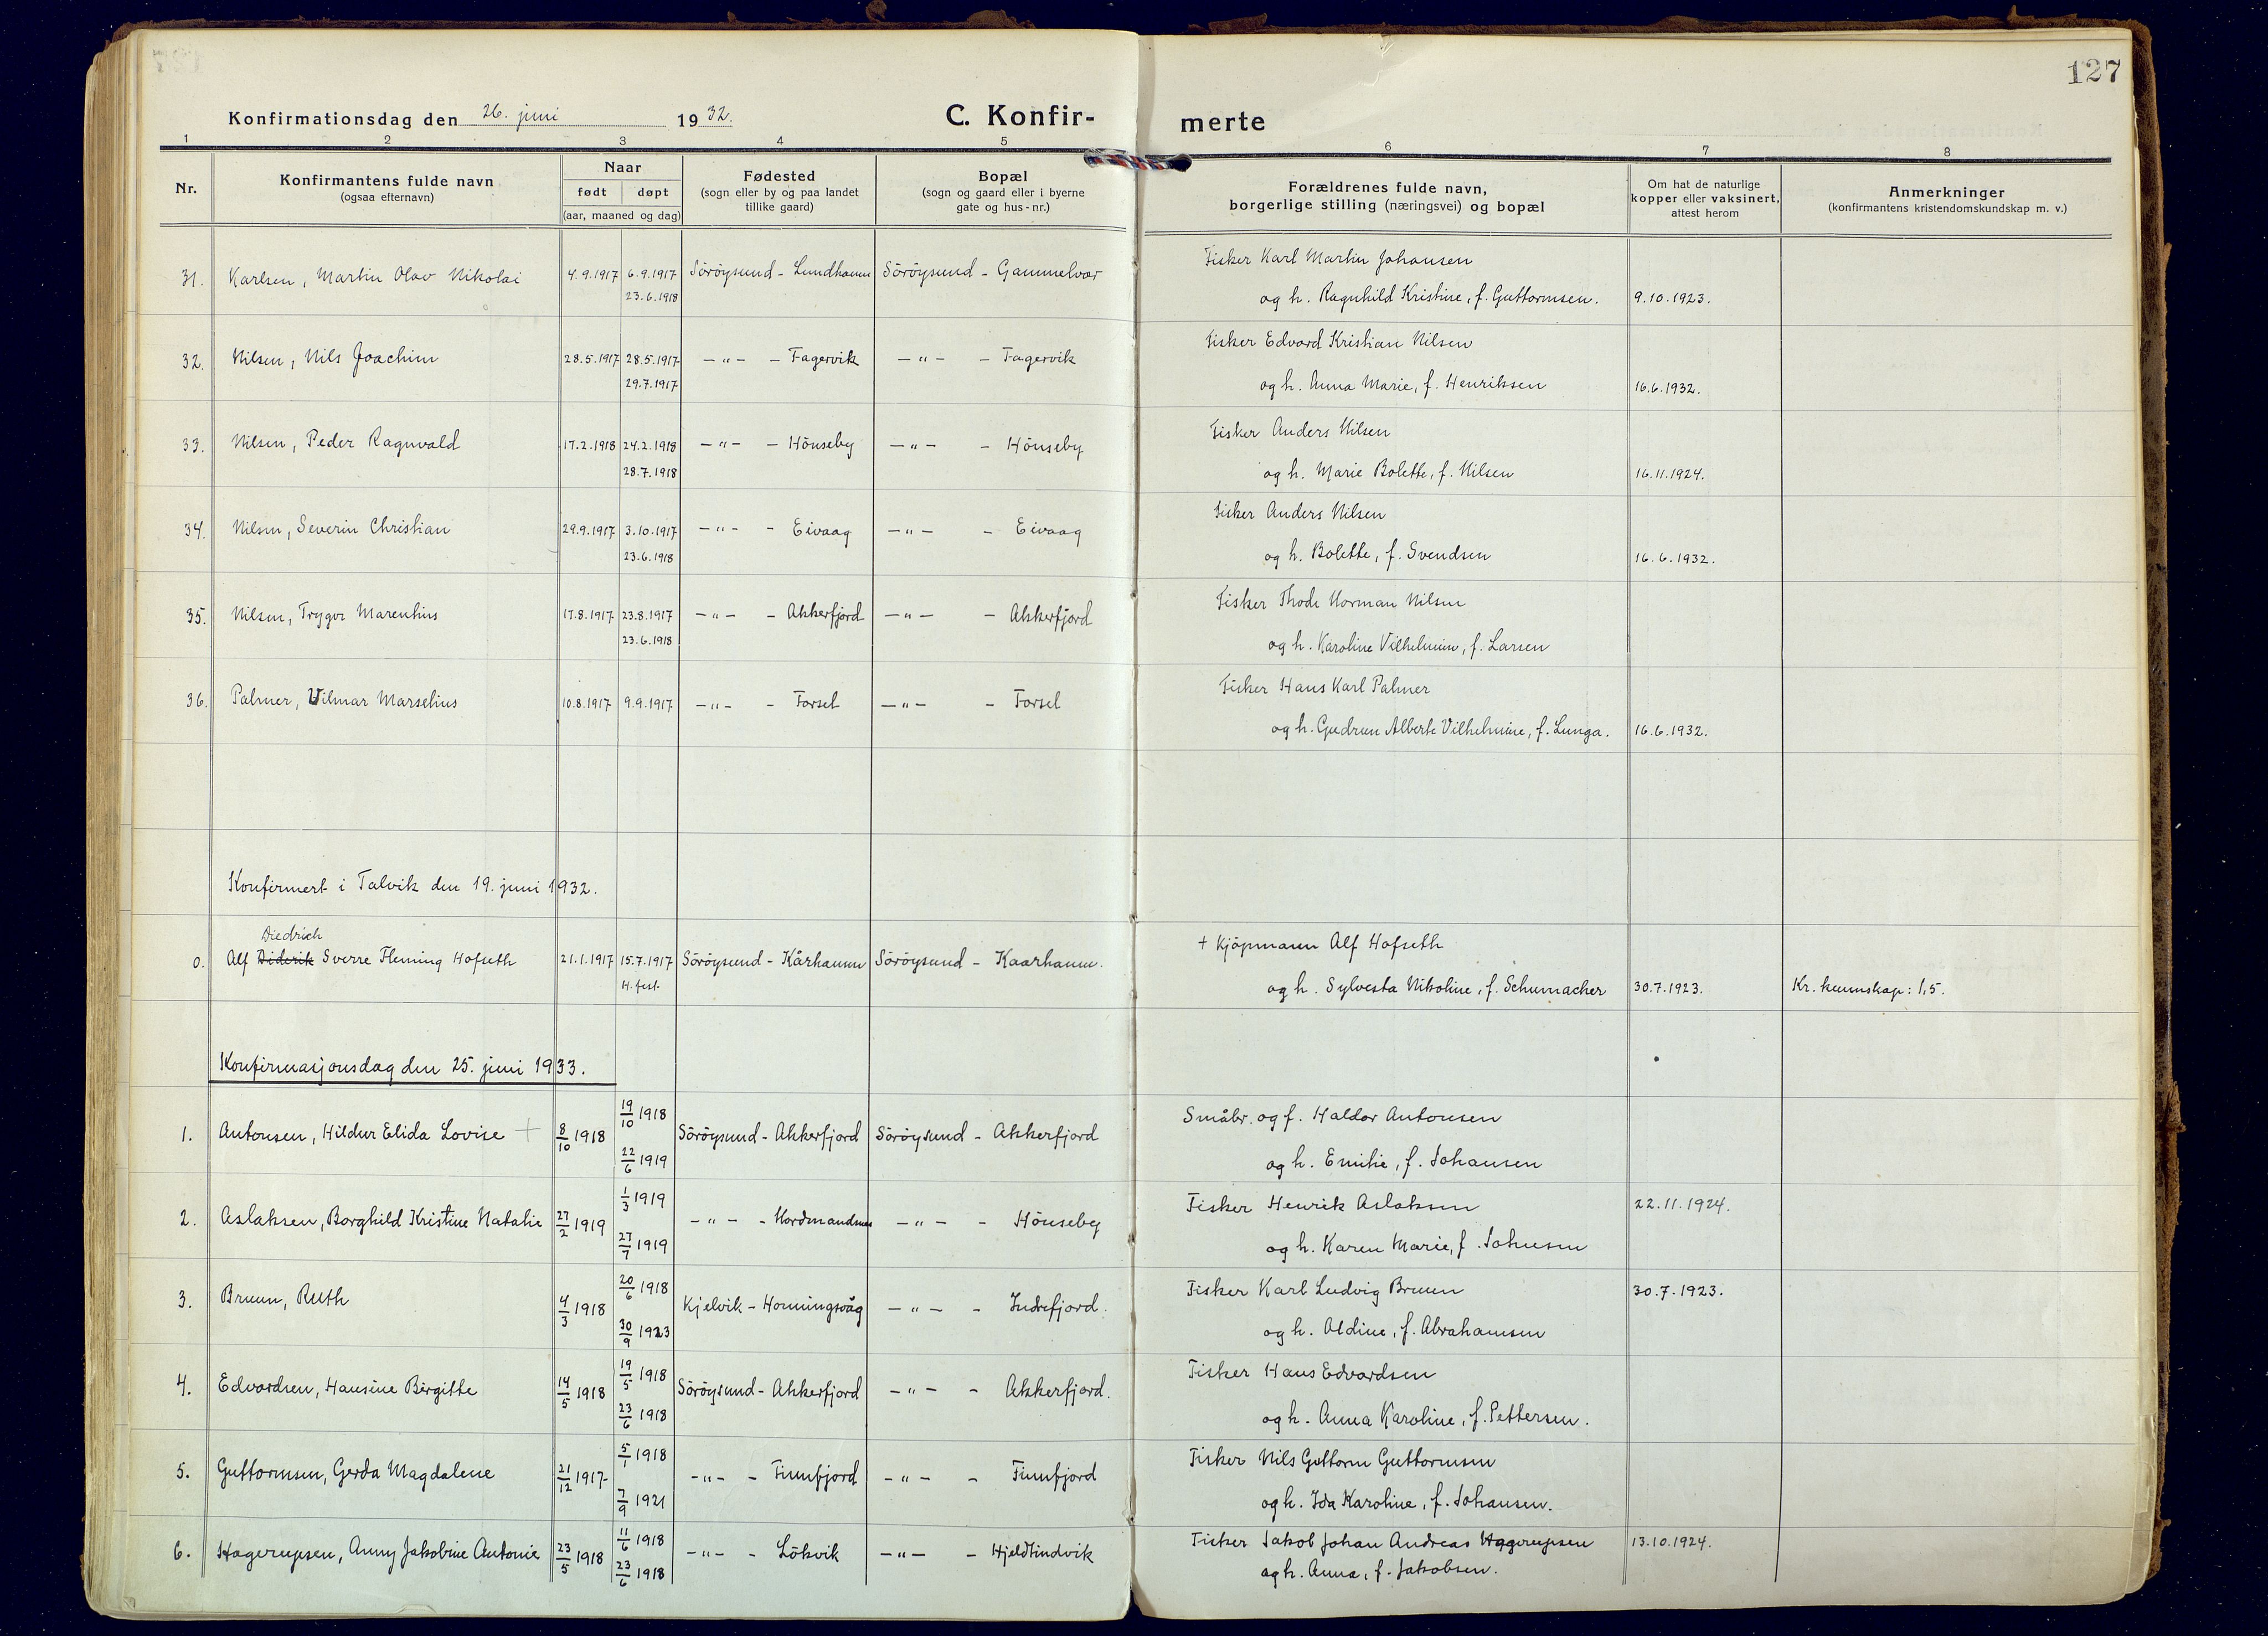 127
Konfirmationsdag den 26. juni 1932.
C. Konfir-
merte
1 2 3 4 5 6 7 8
Nr.
Konfirmantens fulde navn
(ogsaa efternavn)
Naar
født døpt
(aar, maaned og dag)
Fødested
(sogn eller by og paa landet
tillike gaard)
Bopæl
(sogn og gaard eller i byerne
gate og hus-nr.)
Forældrenes fulde navn,
borgerlige stilling (næringsvei) og bopæl
Om hat de naturlige
kopper eller vaksinert,
attest herom
Anmerkninger
(konfirmantens kristendomskundskap m. v.)
Fisker Karl Martin Johansen
31. Karlsen, Martin Olav Nikolai 4.9.1917 6.9.1917 Söröysund - Lundhamn Söröysund - Gammelvær
23.6.1918 og h. Ragnhild Kristine, f. Guttormsen. 9.10.1923.
Fisker Edvard Kristian Nilsen
32. Nilsen, Nils Joachim 28.5.1917 28.5.1917 -"- - Fagervik -"- - Fagervik
29.7.1917 og h. Anna Marie, f. Henriksen 16.6.1932.
Fisker Anders Nilsen
33. Nilsen, Peder Ragnvald 17.2.1918 24.2.1918 -"- - Hönseby -"- - Hönseby
28.7.1918 og h. Marie Bolette, f. Nilsen 16.11.1924.
Fisker Anders Nilsen
34. Nilsen, Severin Christian 29.9.1917 3.10.1917 -"- - Eivaag -"- - Eivaag
23.6.1918 og h. Bolette, f. Svendsen 16.6.1932.
Fisker Thode Norman Nilsen
35. Nilsen, Trygve Marentius 17.8.1917 23.8.1917 -"- - Akkerfjord -"- - Akkerfjord
23.6.1918 og h. Karoline Vilhelmine, f. Larsen
Fisker Hans Karl Palmer
36. Palmer, Vilmar Marselius 10.8.1917 9.9.1917 -"- - Forsel -"- - Forsel
og h. Gudrun Alberte Vilhelmine, f. Lunga. 16.6.1932.
Konfirmert i Talvik den 19. juni 1932.
Diedrich
+ Kjöpmann Alf Hofseth
0. Alf Diderik Sverre Fleming Hofseth 21.1.1917 15.7.1917 Söröysund - Kårhamn Söröysund - Kaarhamn.
H. fest og h. Sylvesta Nikoline, f. Schumacher 30.7.1923. Kr. kunnskap: 1,5.
Konfirmasjonsdag den 25. juni 1933.
19/10 1918 Småbr. og f. Haldor Antonsen
1. Antonsen, Hildur Elida Lovise + 8/10 1918 Söröysund - Akkerfjord Söröysund - Akkerfjord
22/6 1919 og h. Emilie, f. Johansen
1/3 1919 Fisker Henrik Aslaksen 22.11.1924.
2. Aslaksen, Borghild Kristine Natalie 27/2 1919 -"- - Nordmandsnes -"- - Hönseby
27/7 1919 og h. Karen Marie, f. Johnsen
20/6 1918 Fisker Karl Ludvig Bruun 30.7.1923.
3. Bruun, Ruth 4/3 1918 Kjelvik - Honningsvåg -"- - Indrefjord.
30/9 1923 og h. Aldine, f. Abrahamsen
19/5 1918 Fisker Hans Edvardsen
4. Edvardsen, Hansine Birgitte 14/5 1918 Söröysund - Akkerfjord -"- - Akkerfjord.
23/6 1918 og h. Anna Karoline, f. Pettersen.
5/1 1918 Fisker Nils Guttorm Guttormsen
5. Guttormsen, Gerda Magdalene 21/12 1917 -"- - Finnfjord -"- - Finnfjord
7/9 1921 og h. Ida Karoline, f. Johansen.
11/6 1918 Fisker Jakob Johan Andreas Hagerupsen 13.10.1924.
6. Hagerupsen, Anny Jakobine Antonie 23/5 1918 -"- - Lökvik -"- - Hjeldtindvik
23/6 1918 og h. Anna, f. Jakobsen.